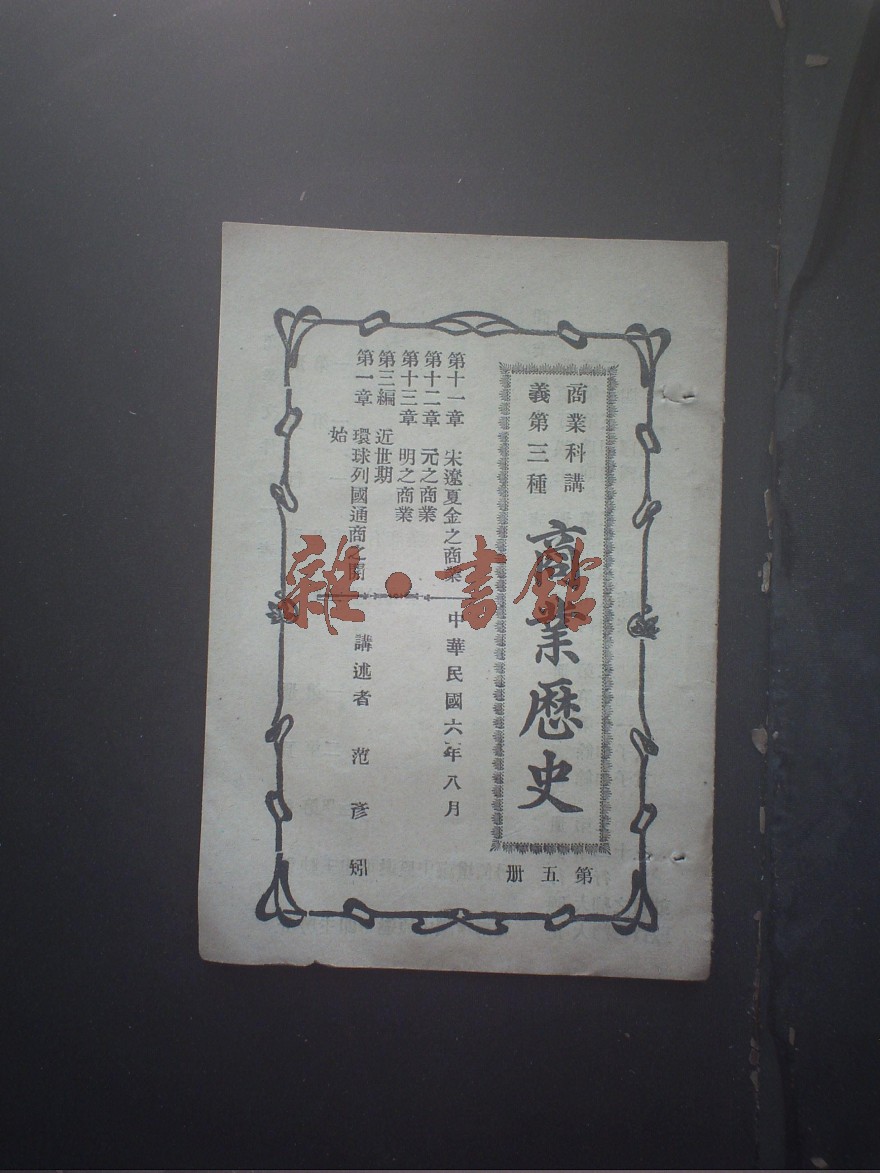 商業科講
義第三種
商業歷史
第五册
第十一章 宋遼夏金之商業
第十二章 元之商業
第十三章 明之商業
第三編 近世期
第一章 環球列國通商之開
始
中華民國六年八月
講述者 范彥矧
雜·書館